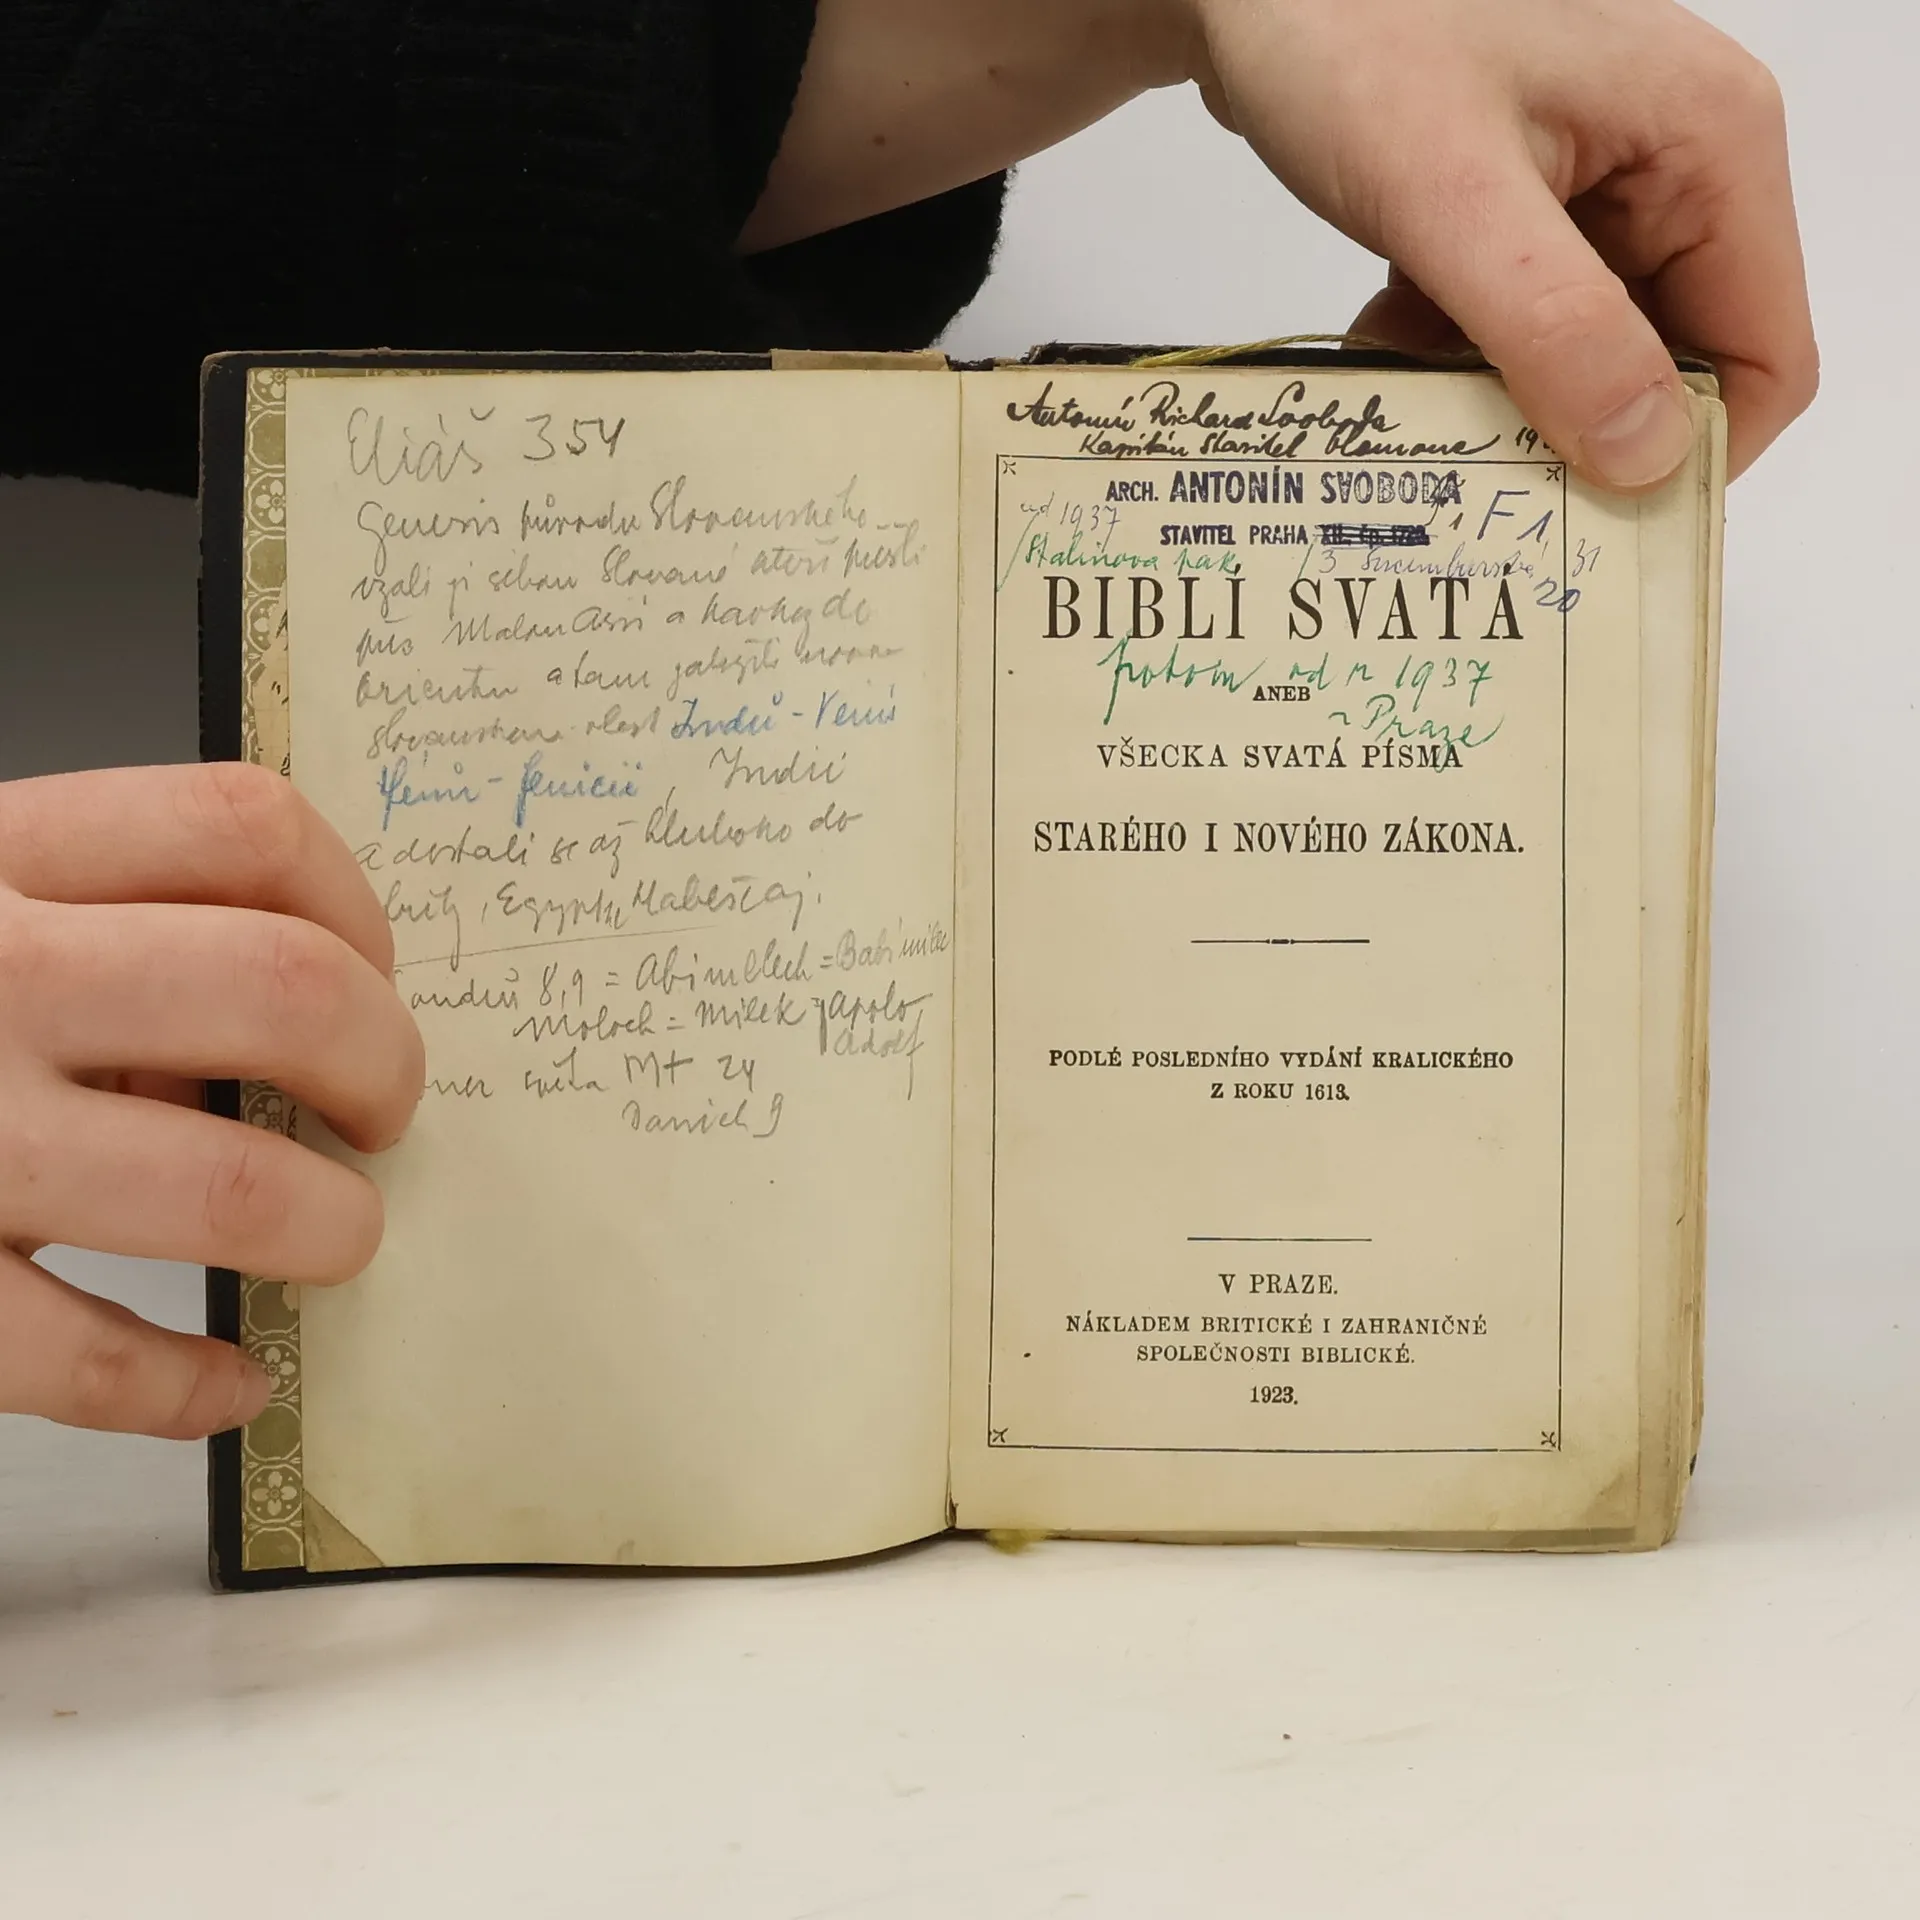 Eliáš 354
Genesis původu Slovanského
vzali si sebou Slované kteří přešli
přes Malou Asii a
orientu a tam založili
slovanskou vlast Indů - Venů
Henů - Fenicii, Indii
a dostali se až hluboko do
Egypta, Habeše
8,9 = Abimelech = Babimilec
Moloch = Milek = Apolo
Adolf
světa Mt 24
Daniel 9
Antonín Richard Svoboda
Kapitán Stavitel Olomouc
ARCH. ANTONÍN SVOBODA
F1,
od 1937
STAVITEL PRAHA XII. čp.
Stalinova pak 3 31
20
BIBLÍ SVATÁ
potom od r 1937
ANEB
v Praze
VŠECKA SVATÁ PÍSMA
STARÉHO I NOVÉHO ZÁKONA.
PODLÉ POSLEDNÍHO VYDÁNÍ KRALICKÉHO
Z ROKU 1613.
V PRAZE.
NÁKLADEM BRITICKÉ I ZAHRANIČNÉ
SPOLEČNOSTI BIBLICKÉ.
1923.